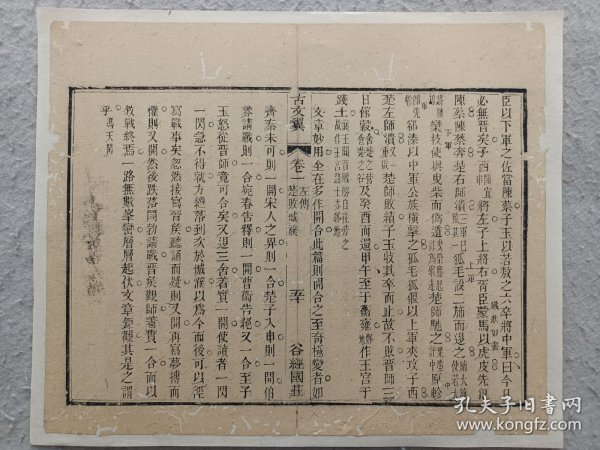 臣以下軍之佐當陳蔡子玉以若敖之六卒將中軍曰今日
必無晉矣子西將左子上將右胥臣蒙馬以虎皮先犯
陳蔡陳蔡奔楚右師潰狐毛設二旆而退之
欒枝使輿曳柴而偽遁楚師馳之原軫
郤溱以中軍公族橫擊之狐毛狐偃以上軍夾攻子西
楚左師潰楚師敗績子玉收其卒而止故不敗晉師三
日館穀及癸酉而還甲午至于衡雍作王宮于
踐土
文章妙用全在多作開合此篇則開合之至奇極變者如
古文翼
卷一
左傳
楚敗城濮
五十
谷經國莊
齊秦未可則一開宋人之畀則一合楚子入申則一開伯
棼請戰則一合宛春告釋則一開曹衞告絕又一合至子
玉怒從晉師竟可合矣又退三舍著實一開使讀者一閃
一閃急不得就方纔落到次於城濮以為今而後可以逕
寫戰事矣忽然接寫晉矦聽誦而疑則又一開再寫夢搏而
懼則又一開然後跌落鬭勃請戰晉矦觀師著實一合而以
敘戰終焉一路無數峯巒層層起伏文章鉅觀其是之謂
乎馮天閑
孔夫子旧书网
www.kongfz.com